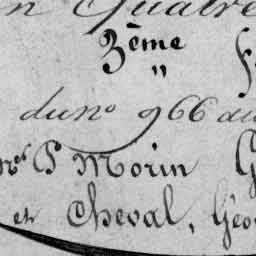 n Quatre
3ème
"
du no 966 au
P Morin G
et Cheval, Géo